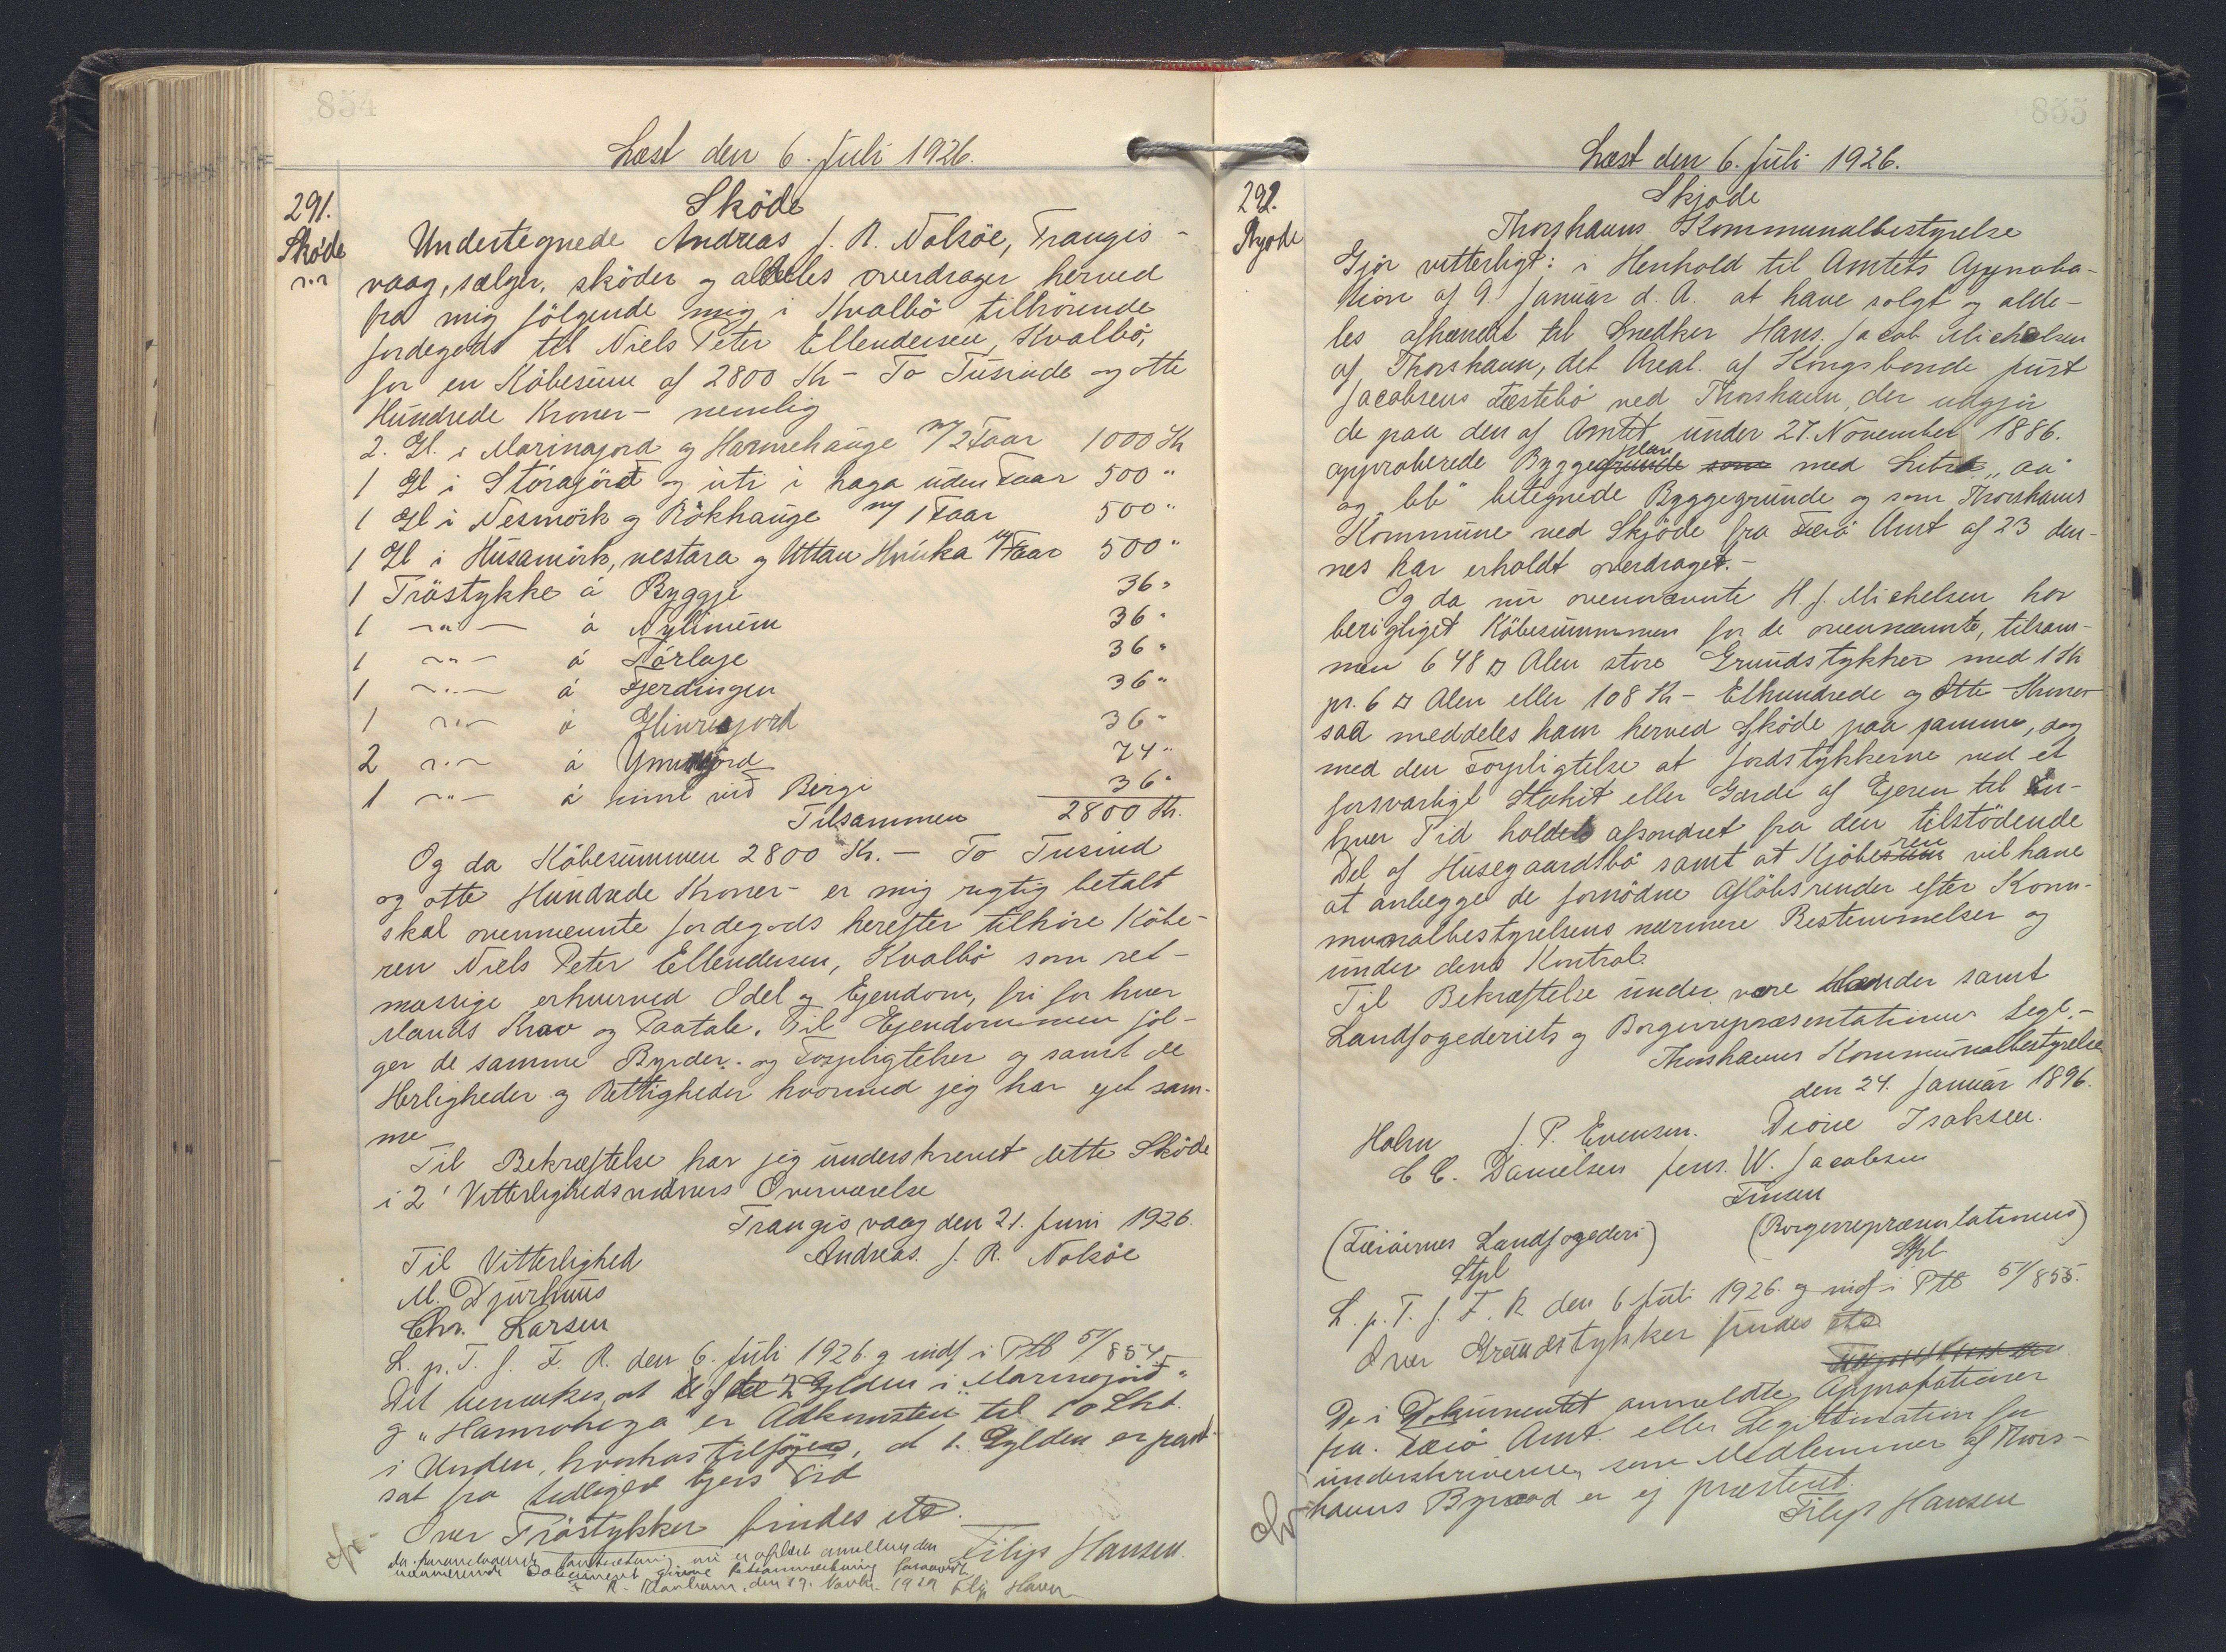 854
Læst den 6. Juli 1926.
291.
Sköde
Sköde
Undertegnede Andreas J. R. Nolsöe, Trangis-
vaag, sælger, sköder og aldeles overdrager herved
fra mig fölgende mig i Kvalbö tilhörende
Jordegods til Niels Peter Ellendersen, Kvalbö,
for en Köbesum af 2800 Kr - To Tusinde og otte
Hundrede Kroner - nemlig
2. Gl. i Marinajord og Hamrehauge m/ 2 Faar 1000 Kr
1 Gl i Stórajörd og úti i haga uden Faar 500 "
1 Gl i Nesmörk og Rökhauge m/ 1 Faar 500 "
1 Gl i Húsamörk, vestara og Uttan Hvúka m/ 1 Faar 500 "
1 Tröstykke á Byggje 36 "
1 -"- á Nylinum 36 "
1 -"- á Tórlaje 36 "
1 -"- á Fjerdingen 36 "
1 -"- á Glivrajord 36 "
2 -"- á 74 "
1 -"- á inni við Bergi 36 "
Tilsammen 2800 Kr.
Og da Köbesummen 2800 Kr. - To Tusind
og otte Hundrede Kroner - er mig rigtig betalt
skal ovennævnte Jordegods herefter tilhöre Köbe-
ren Niels Peter Ellendersen, Kvalbö som ret-
mæssige erhverved Odel og Ejendom, fri for hver
Mands Krav og Paatale. Til Ejendommen föl-
ger de samme Byrder og Forpligtelser og samt de
Herligheder og Rettigheder hvormed jeg har ejet sam-
me
Til Bekræftelse har jeg underskrevet dette Sköde
i 2 Vitterlighedsvidners Overværelse
Trangisvaag den 21. Juni 1926.
Til Vitterlighed Andreas. J. R. Nolsöe
M. Djurhuus
Chr. Larsen
L. p. T. f. F. R. den 6. Juli 1926 og indf i Ptb 5/854
Det bemærkes, at af de 2 Gylden i "Marinajörd"
og "Hamrohega" er Adkomsten til 10 Skd.
i Orden, hvorhos tilföjes, at 1. Gylden er pant-
sat fra tidligere Ejers Tid
Over Tröstykker findes itb.
Filip Hansen.
F R. Thorshavn, den 19. Novbr. 1929
855
Læst den 6. Juli 1926.
292.
Skjøde
Skjøde
Thorshavns Kommunalbestyrelse
Gjör vitterligt: i Henhold til Amtets Approba-
tion af 9. Januar d. A. at have solgt og alde-
les afhændet til Snedker Hans Jacob Michelsen
af Thorshavn, det Areal. af Kongsbonde Just
Jacobsens Fæstebö ved Thorshavn, der udgjör
de paa den af Amtet under 27. November 1886.
approberede Byggeplan med Litra "aa
og bb" betegnede Byggegrunde og som Thorshavns
Kommune ved Skjöde fra Færö Amt af 23 den-
nes har erholdt overdraget. -
Og da nu ovennævnte H. J. Michelsen har
berigtiget Köbesummen for de ovennævnte, tilsam-
men 648 □ Alen store Grundstykker med 1 Kr
pr. 6 □ Alen eller 108 Kr - Ethundrede og Otte Kroner
saa meddeles ham herved Sköde paa samme, dog
med den Forpligtelse at Jordstykkerne ved et
forsvarligt Stakit eller Gærde af Ejeren til En-
hver Tid holdes afsondret fra den tilstödende
Del af Husegaardsbö samt at Kjöberen vil have
at anlægge de fornödne Aflöbsrender efter Kom-
munalbestyrelsens nærmere Bestemmelser og
under dens Kontrol.
Til Bekræftelse under vore Hænder samt
Landfogederiets og Borgerrepræsentationens Segl. -
Thorshavns Kommunalbestyrelse
den 24. Januar 1896.
Holm J. P. Evensen. Isaksen.
C C. Danielsen Jens. W. Jacobsen
Finsen
(Færöernes Landfogederi) (Borgerrepræsentationens)
Stpl Stpl
L. p. T. f. F. R den 6 Juli 1926 og indf i Ptb 5/855.
Over Grundstykker findes itb
De i Dokumentet anmeldte Approbationer
fra. Færö Amt eller Legitimation for
underskriverne som Medlemmer af Thors-
havns Byraad er ej præsteret.
Filip Hansen